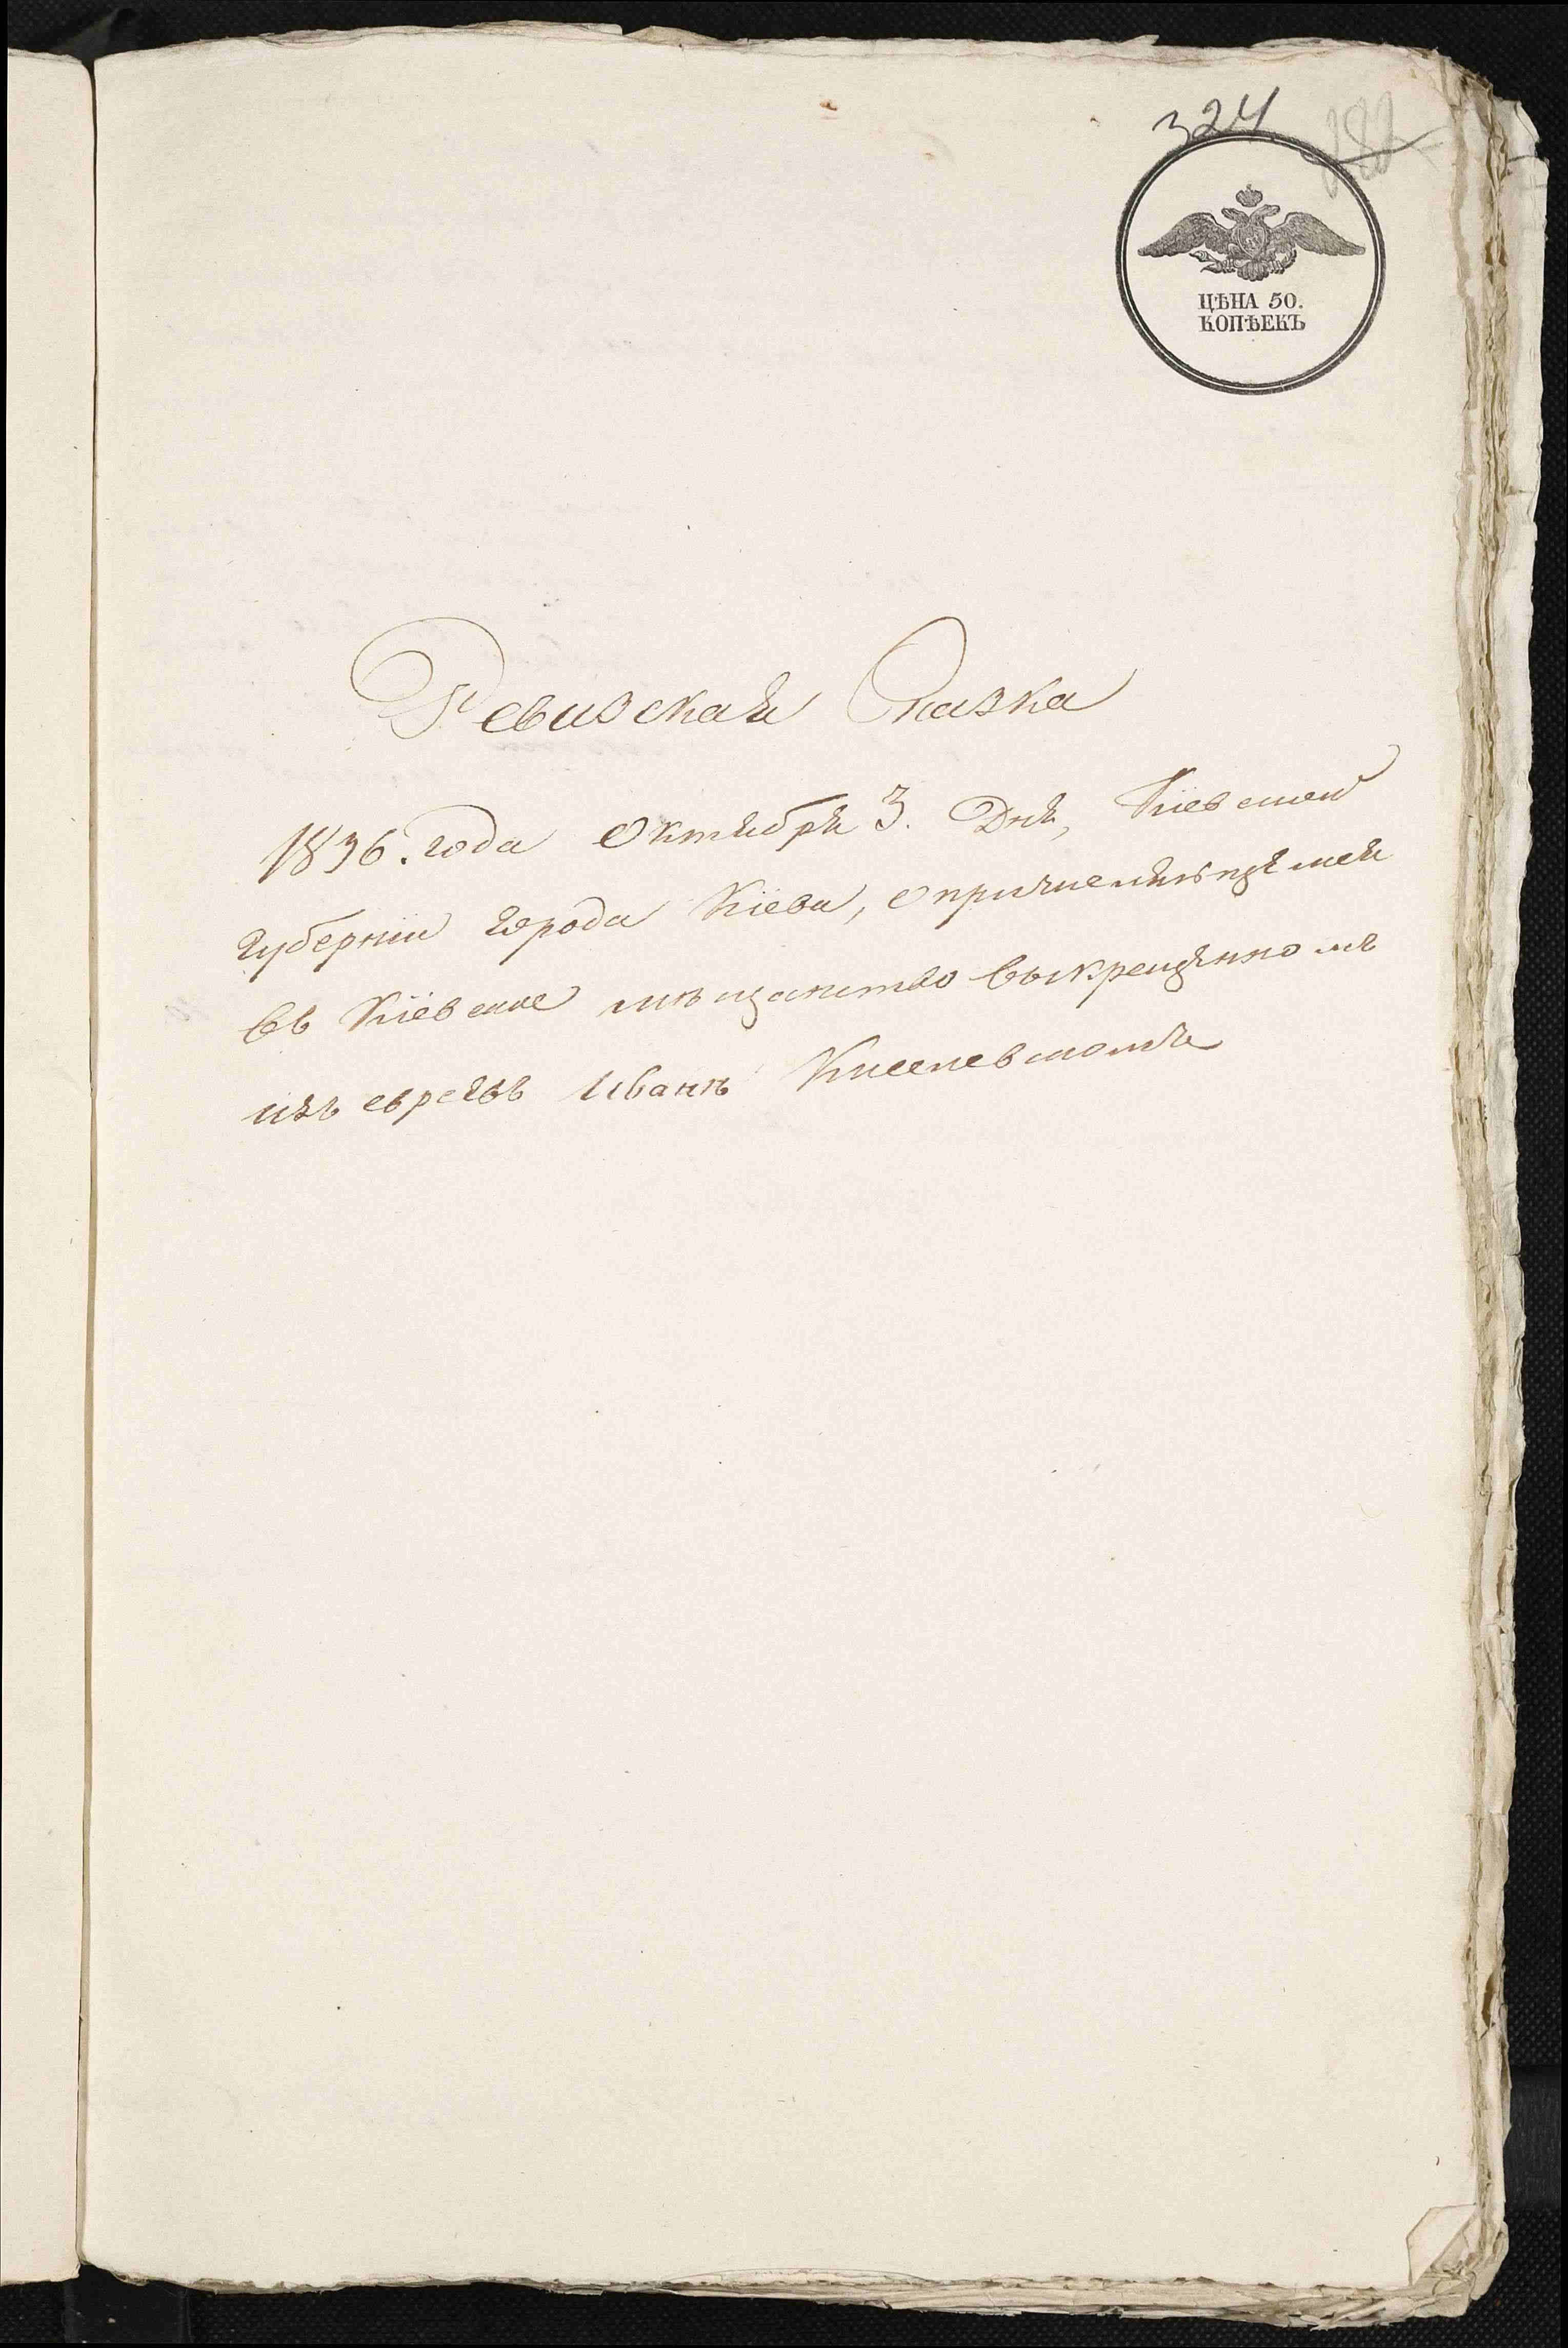 324
282
ЦѢНА 50.
КОПѢЕКЪ
Ревизская Сказка
1836. года Октября 3. Дня, Кіевской
губерніи города Кіева, о причисляющемся
въ Кіевское мѣщанство выкрещенномъ
изъ евреевъ Иванѣ Киселевскомъ